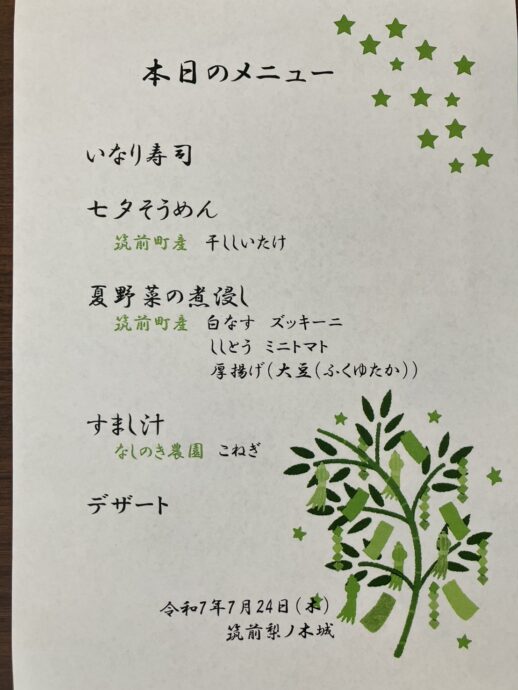 本日のメニュー
いなり寿司
七夕そうめん
筑前町産 干ししいたけ
夏野菜の煮浸し
筑前町産 白なす ズッキーニ
ししとう ミニトマト
厚揚げ(大豆(ふくゆたか))
すまし汁
なしのき農園 こねぎ
デザート
令和7年7月24日(木)
筑前梨ノ木城